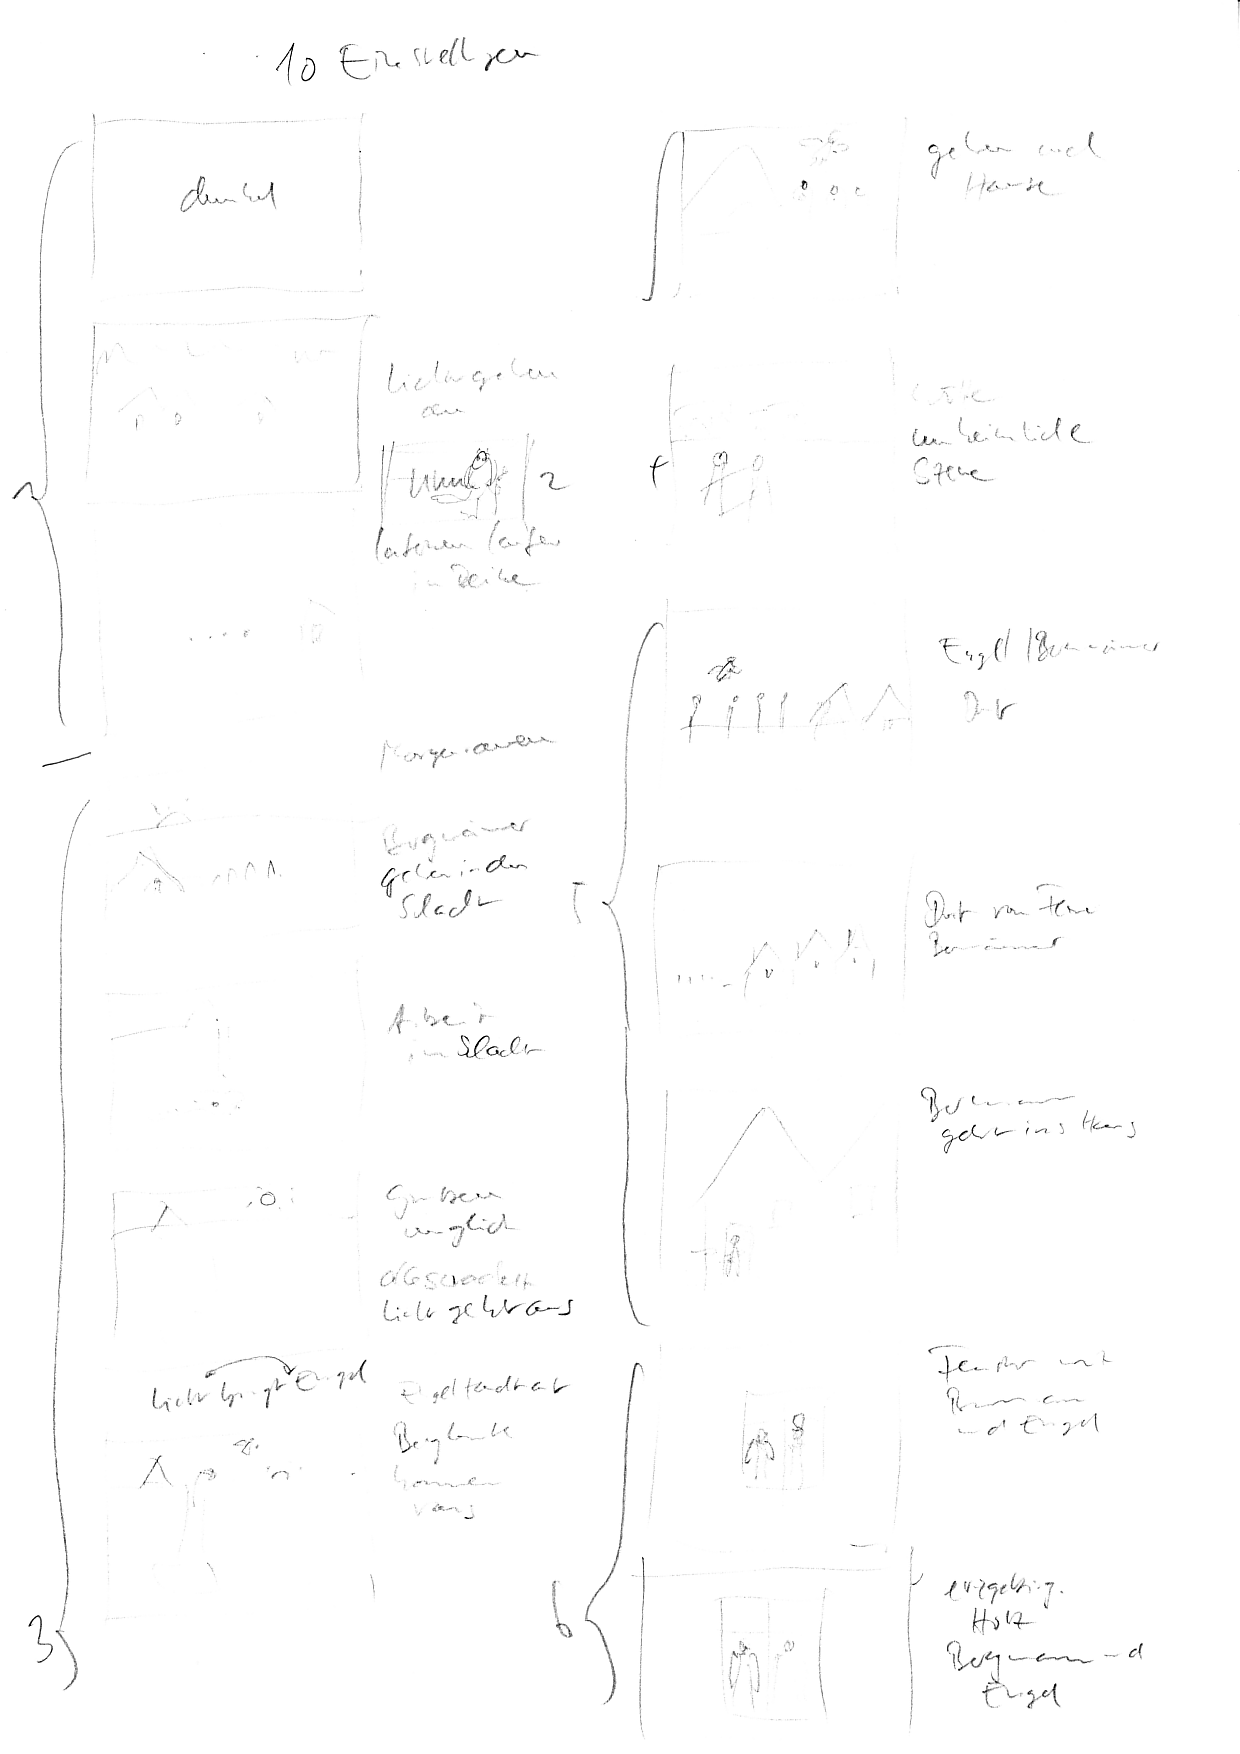 10 Einstellungen
dunkel
Lichter gehen
an
2
laufen
in Reihe
2
Morgengrauen
Bergmänner
gehen in den
Stadt
Arbeit
im Stadt
Gruben
unglück
Licht geht aus
Licht bringt Engel
Engel
Bergleute
kommen
raus
3
gehen nach
Hause
unheimliche
Szene
4
Engel / Bergmänner
Dorf
Dorf von Ferne
Bergmänner
5
Bergmann
geht ins Haus
Fenster mit
Bergmann
und Engel
erzgebirg.
Holz
Bergmann und
Engel
6